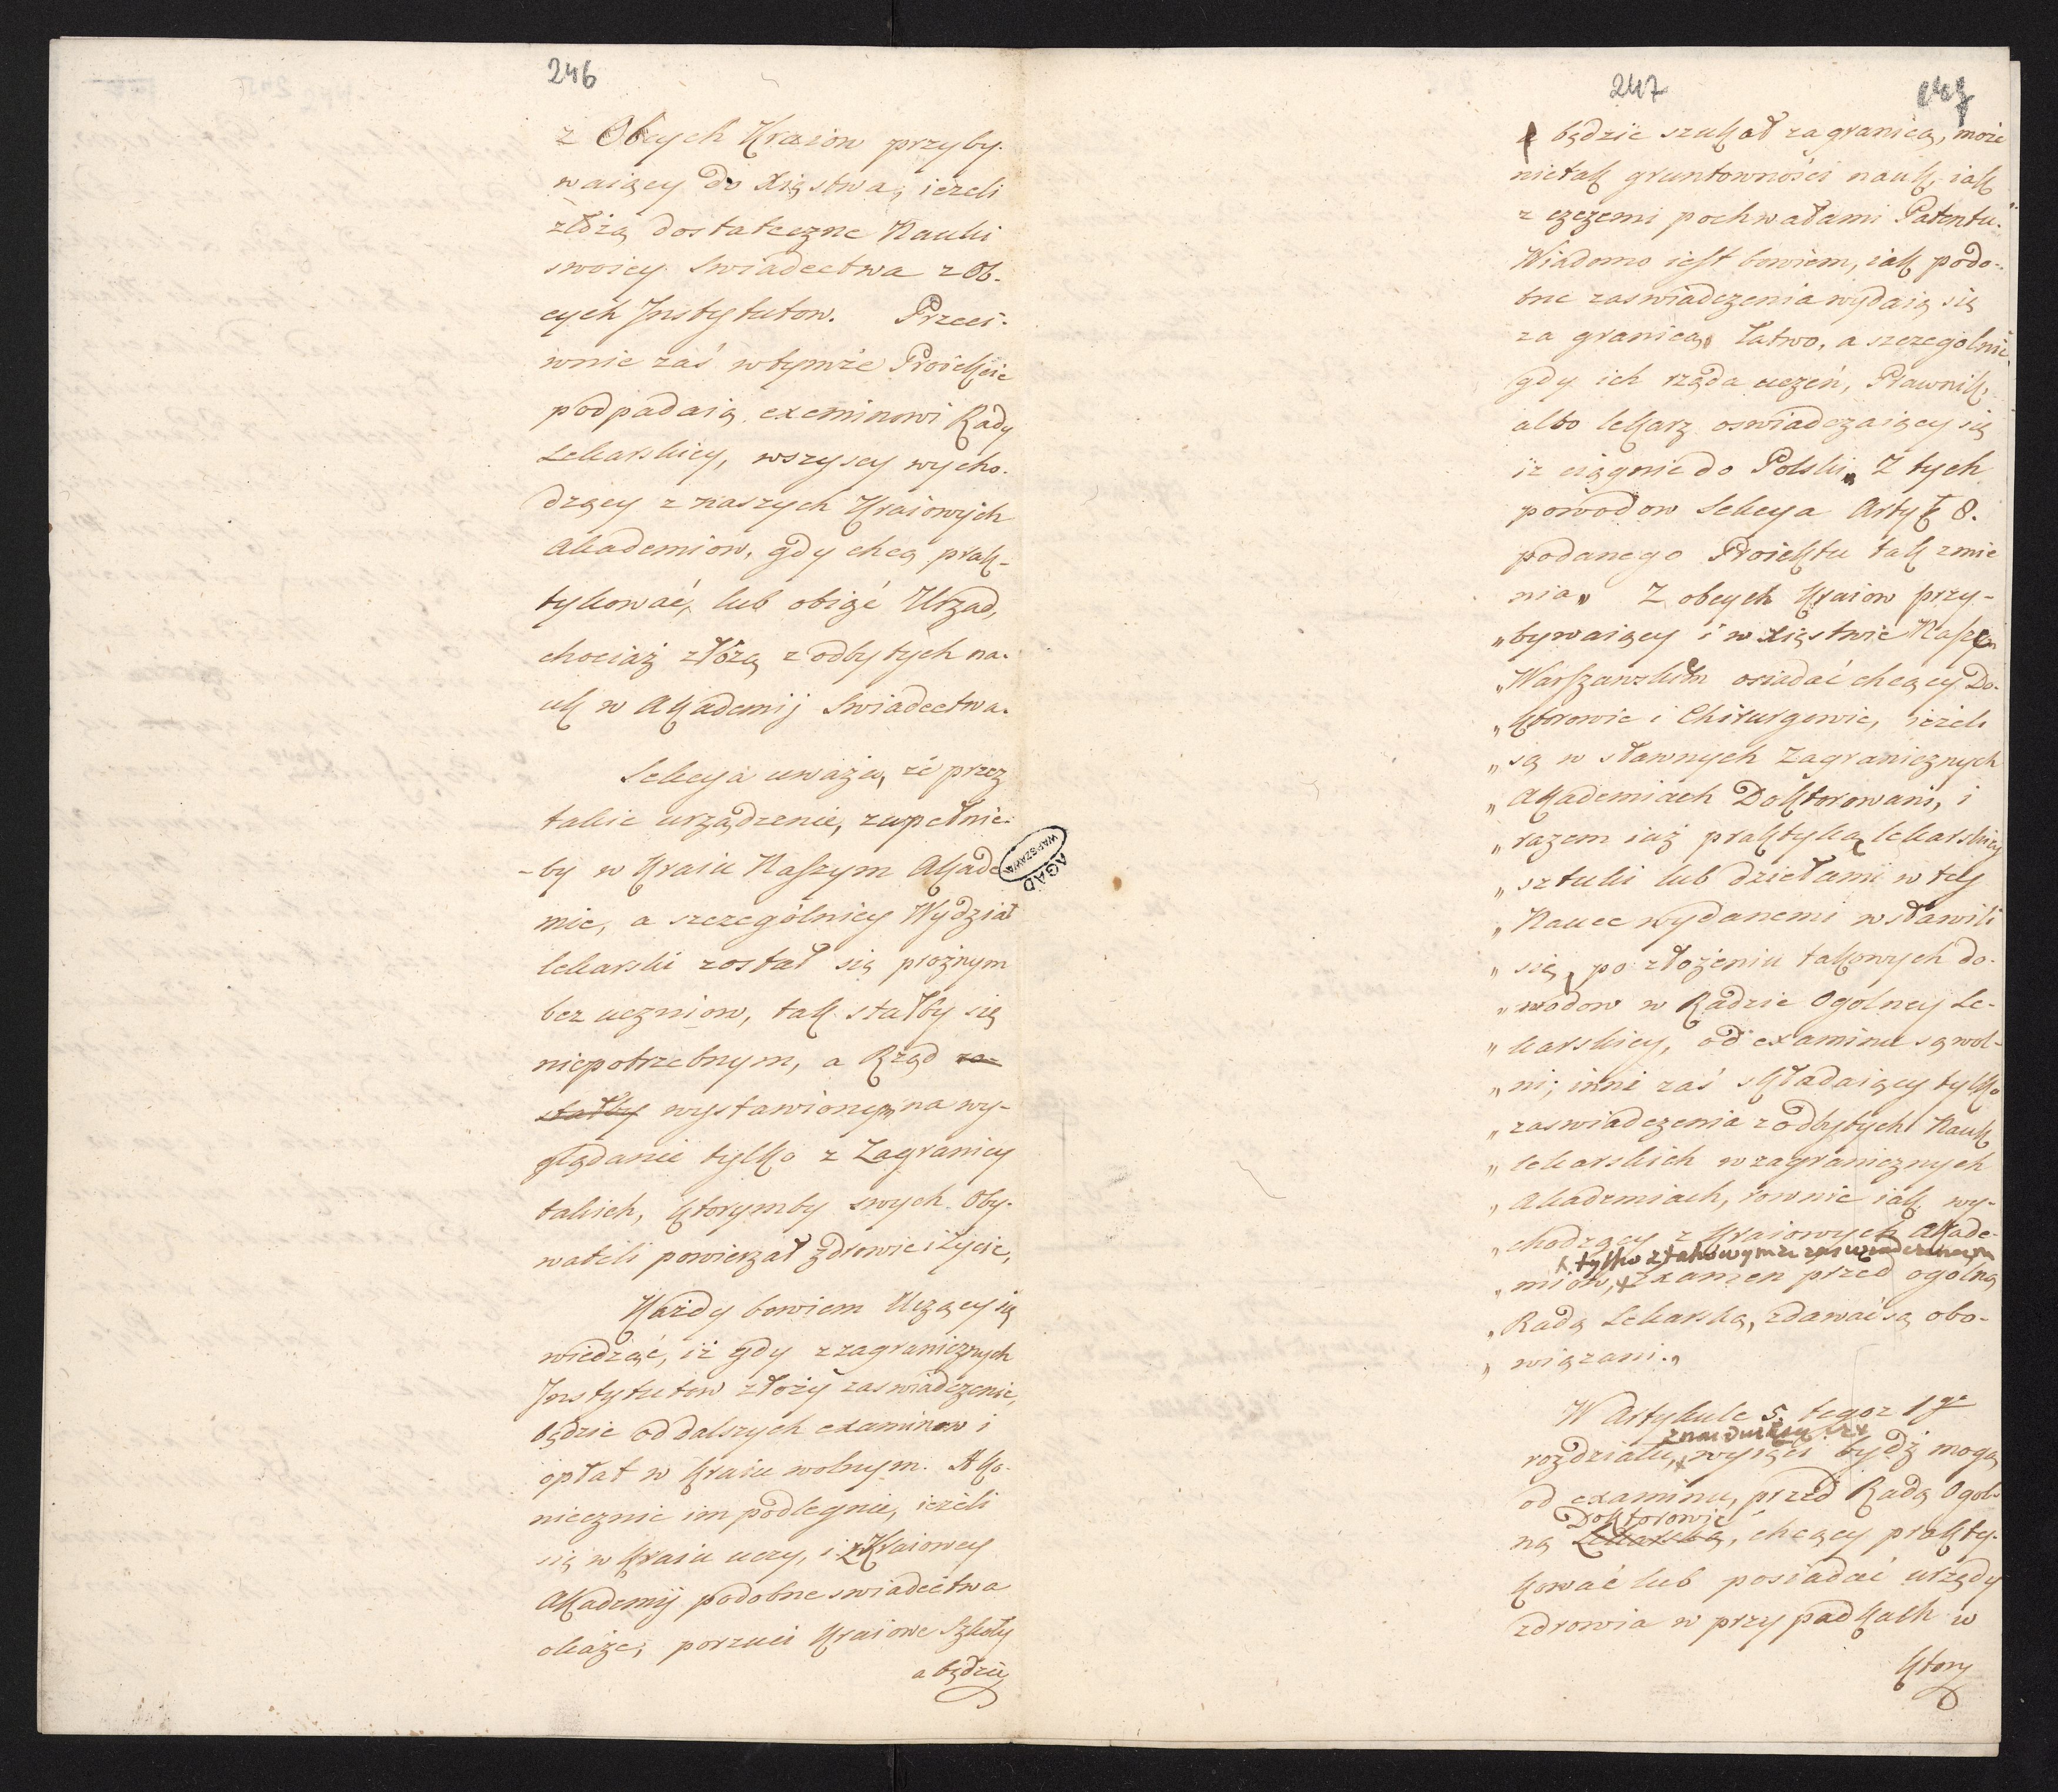 246
z Obcych Kraiow przyby-
waiący do Xięstwa, ieżeli
złożą dostateczne Nauki
swoiey swiadectwa z Ob-
cych Instytutow. Przeci-
wnie zaś w tymże Proiekcie
podpadaią exeminowi Rady
Lekarskiey, wszyscy wycho-
dzący z naszych Kraiowych
Akademiow, gdy chcą prak-
tykować, lub obiąć Urząd,
chociaż złożą z odbytych na-
uk w Akademij swiadectwa.
Sekcya uważa, że przez
takie urządzenie, zupełnie-
-by w Kraiu Naszym Akade
mie, a szczególniey Wydział
lekarski został się prożnym
bez uczniow, tak stałby się
niepotrzebnym, a Rząd za-
stałby wystawionym na wy-
glądanie tylko z Zagranicy
takich, ktorymby swych Oby-
wateli powierzał zdrowie i życie,
Każdy bowiem Uczący się
wiedząć, iż gdy z zagranicznych
Instytutow złoży zaswiadczenie,
będzie od dalszych examinow i
opłat w Kraiu wolnym. A ko-
niecznie im podlegnie, ieżeli
się w Kraiu uczy, i z Kraiowey
Akademij podobne swiadectwa
okaże, porzuci Kraiowe Szkoły
a będzie
AGAD
WARSZAWA
247
będzie szukał za granicą, może
nietak gruntowności nauk, iak
z czczemi pochwałami Patentu."
Wiadomo iest bowiem, iak podo-
bne zaswiadczenia wydaią się
za granicą, łatwo, a szczegolnie
gdy ich rząda uczeń, Prawnik,
albo lekarz oswiadczaiący się
iż ciągnie do Polski„ Z tych
powodow Sekcya Artył 8.
podanego Proiektu tak zmie
nia„ Z obcych Kraiow przy-
„bywaiący i w Xięstwie Naszem
„Warszawskim osiadać chcący Do-
„ktorowie i Chirurgowie, ieżeli
„są w sławnych Zagranicznych
„Akademiach Doktorowani, i
„razem iuż praktyką lekarskiey
„sztuki lub dziełami w tey
„Nauce wydanemi wsławili
„się, po złożeniu takowych do-
„wodow w Radzie Ogolney Le-
„karskiey, od examinu są wol-
„ni; inni zaś składaiący tylko
„zaswiadczenia z odbytych Nauk
„lekarskich w zagranicznych
„Akademiach, rownie iak wy-
„chodzący z Kraiowych Akade-
x tylko z takowymże zaswiadczeniem
„miow, x Examen przed ogolną
„Radą Lekarską, zdawać są obo-
„wiązani.„
W Artykule 5. tegoż 1go
znayduie się iż
rozdziału, x wyięci bydź mogą
od examinu, przed Radą Ogol-
Doktorowie
ną Lekarską, chcący prakty-
kować lub posiadać urzędy
zdrowia w przypadkach w
ktory